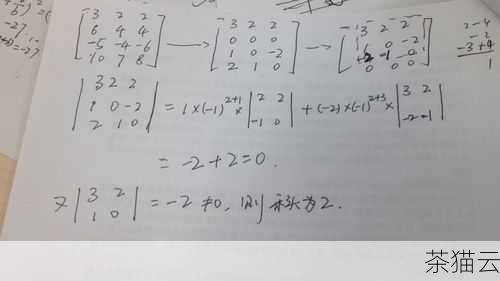 [3 2 2 / 6 4 4 / -5 -4 -6 / 10 7 8] → [3 2 2 / 0 0 0 / 1 0 -2 / 2 1 0] → [3 2 2 / 1 0 -2 / -2 -1 0 / 0 0 0]
2-4
-2
-3+4
1
|3 2 2 / 1 0 -2 / 2 1 0| = 1×(-1)^{2+1}×|2 2 / -1 0| + (-2)×(-1)^{2+3}×|3 2 / -2 -1|
= -2+2=0.
又|3 2 / 1 0| = -2≠0, 则秩为2.
茶猫云